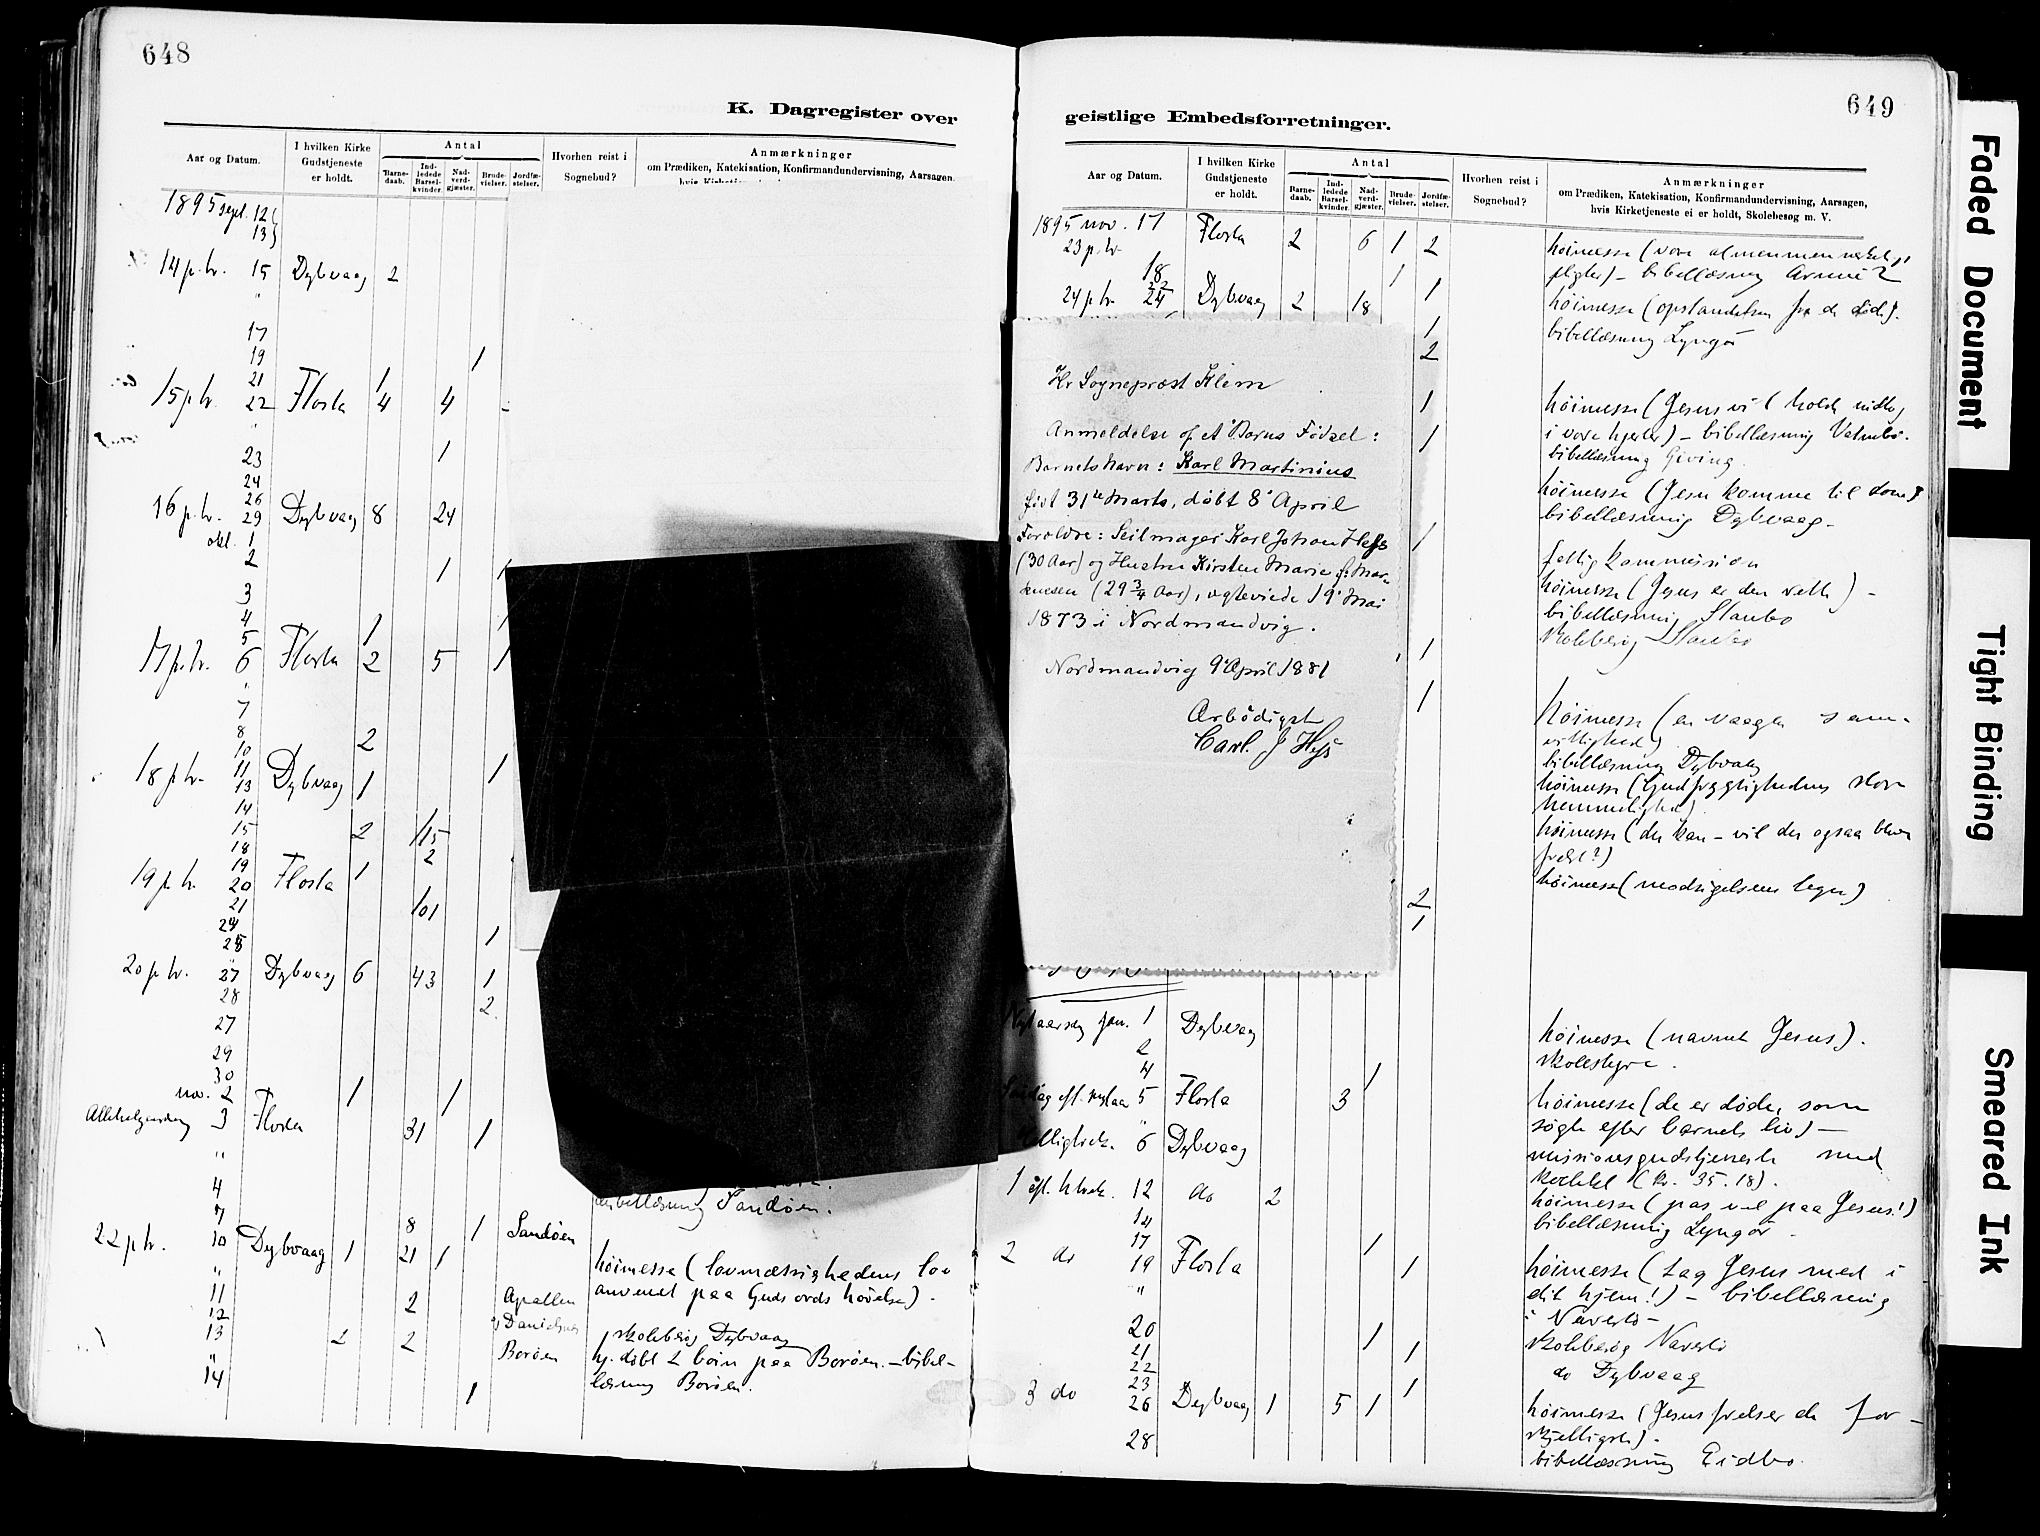 648
K. Dagregister over
Aar og Datum.
I hvilken Kirke
Gudstjeneste
er holdt.
Antal
Barne-
daab.
Ind-
ledede
Barsel-
kvinder.
Nad-
verd-
gjæster.
Brude-
vielser.
Jordfæ-
stelser.
Hvorhen reist i
Sognebud?
Anmærkninger
om Prædiken, Katekisation, Konfirmandundervisning, Aarsagen,
1895 sept. 12
13
14 p. tr. 15 Dybvaag 2
"
17
19 1
21 1
15 p. tr. 22 Flosta 4 4
"
23 1
24
26
16 p. tr. 29 Dybvaag 8 24
okt. 1
2 1 1
3
4 1
5
17 p. tr. 6 Flosta 2 5 1
"
7
8 2
10
11 1
18 p. tr. 13 Dybvaag 1
14
15 2 15
18 2
19 1
19 p. tr. 20 Flosta
21 101
24
25 1
20 p. tr. 27 Dybvaag 6 43 1
28 2
27
29
30
nov. 2 1 1
Allehelgensdag 3 Flosta 31 1
"
4
7 8 1 Sandøen
bibellæsning Sandøen.
22 p tr. 10 Dybvaag 1 21 1 höimesse (lovmæssighedens lov
" anvendt paa Guds ords hörelse).
11 2 Apallen
12 Danielsnes skolebesög Dybvaag
13 2 2 Borøen hj. döbt 2 börn paa Borøen. – bibel-
" læsning Borøen.
14 1
649
geistlige Embedsforretninger.
Aar og Datum.
I hvilken Kirke
Gudstjeneste
er holdt.
Antal
Barne-
daab.
Ind-
ledede
Barsel-
kvinder.
Nad-
verd-
gjæster.
Brude-
vielser.
Jordfæ-
stelser.
Hvorhen reist i
Sognebud?
Anmærkninger
om Prædiken, Katekisation, Konfirmandundervisning, Aarsagen,
hvis Kirketjeneste ei er holdt, Skolebesøg m. V.
1895 nov. 17 Flosta 2 6 1 2 höimesse (vore almenmenneskel.
23 p. tr. pligter) – bibellæsning
18 1
22 1
24 p tr. 24 Dybvaag 2 18 höimesse (opstandelsen fra de döde).
1 bibellæsning Lyngör
2
1 höimesse (Jesus vil holde indtog
1 i vore hjerter) – bibellæsning
bibellæsning Gjeving.
höimesse (Jesu komme til dom)
bibellæsning Dybvaag –
1 fattigkommission
höimesse (Jesus er den rette) –
bibellæsning Staubo
1 skolebesög Staubo
1 Höimesse (en vaagen sam-
vittighed)
bibellæsning Dybvaag
höimesse (Gudfrygtighedens store
hemmelighed)
höimesse (du kan – vil du ogsaa blive
frelst?)
2 höimesse (modsigelsens tegn)
1
Hr Sogneprest Klem
Anmeldelse af et Barns Födsel:
Barnets Navn: Karl Martinius
födt 31te Marts, döbt 8de April
Foreldre: Seilmager Karl Johan Hess
(30 Aar) og Hustru Kirsten Marie f: Mar-
kussen (29 3/4 Aar), ægteviede 19de Mai
1873 i Nordmandvig.
Nordmandvig 9de April 1881
Ærbödigst
Carl. J Hess
Nytaarsdag jan. 1 Dybvaag höimesse (navnet Jesus).
2 skolestyre.
4 1
Söndag eft. nytaar 5 Flosta 3 höimesse (de er döde, som
" sögte efter barnets liv) –
Helligtrek. 6 Dybvaag missionsgudstjeneste med
kollekt (kr. 35.18).
1 eft. H.trek. 12 do 2 höimesse (pas vel paa Jesus!)
14 bibellæsning Lyngör.
17 1
2 do 19 Flosta 1 höimesse (tag Jesus med i
" dit hjem!) – bibellæsning
i Naversti –
20 1 skolebesög Naversti
21 1
22 do Dybvaag
23 1
3 do 26 Dybvaag 1 5 1 höimesse (Jesus frelser de for-
skjelligste).
28 bibellæsning Eidbo.
Faded Document
Tight Binding
Smeared Ink